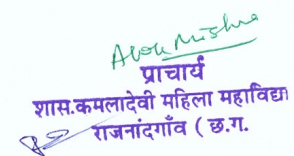 Alok Mishra
प्राचार्य
शास.कमलादेवी महिला महाविद्या
राजनांदगाँव ( छ.ग.